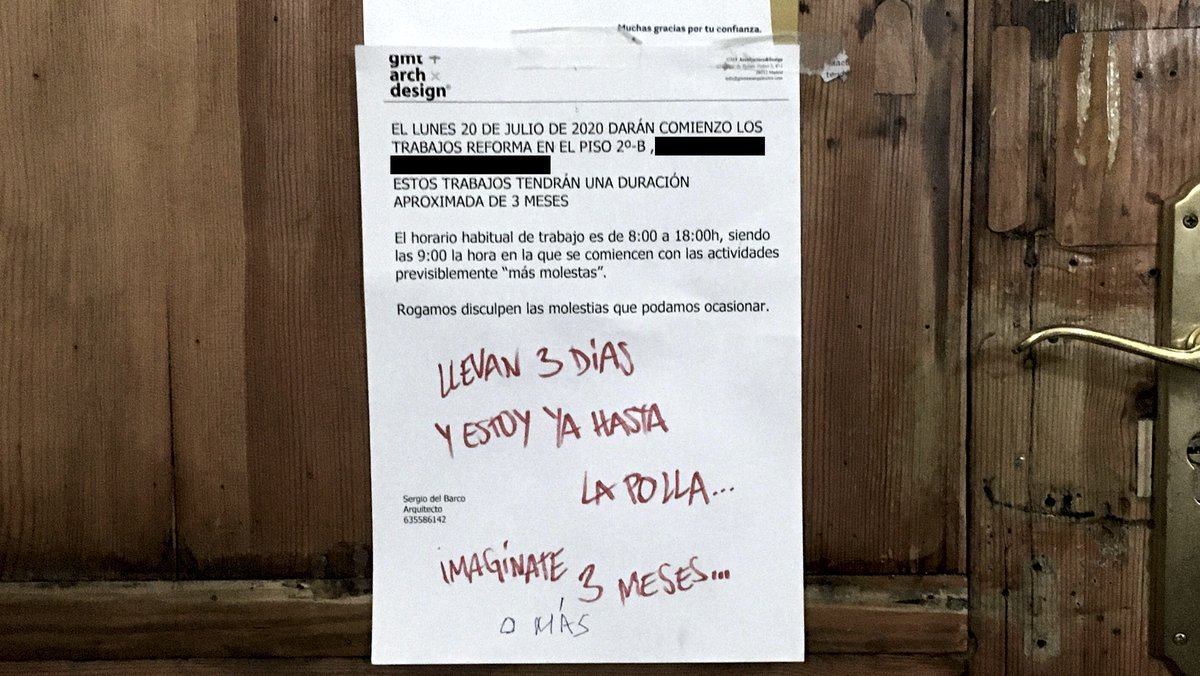 Muchas gracias por tu confianza.
gmt +
arch ×
design®
EL LUNES 20 DE JULIO DE 2020 DARÁN COMIENZO LOS
TRABAJOS REFORMA EN EL PISO 2º-B ,
ESTOS TRABAJOS TENDRÁN UNA DURACIÓN
APROXIMADA DE 3 MESES
El horario habitual de trabajo es de 8:00 a 18:00h, siendo
las 9:00 la hora en la que se comiencen con las actividades
previsiblemente “más molestas”.
Rogamos disculpen las molestias que podamos ocasionar.
LLEVAN 3 DÍAS
Y ESTOY YA HASTA
LA POLLA...
Sergio del Barco
Arquitecto
635586142
IMAGÍNATE 3 MESES...
, O MÁS